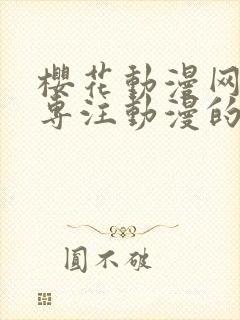 櫻花動漫网
专注動漫的
圓不破